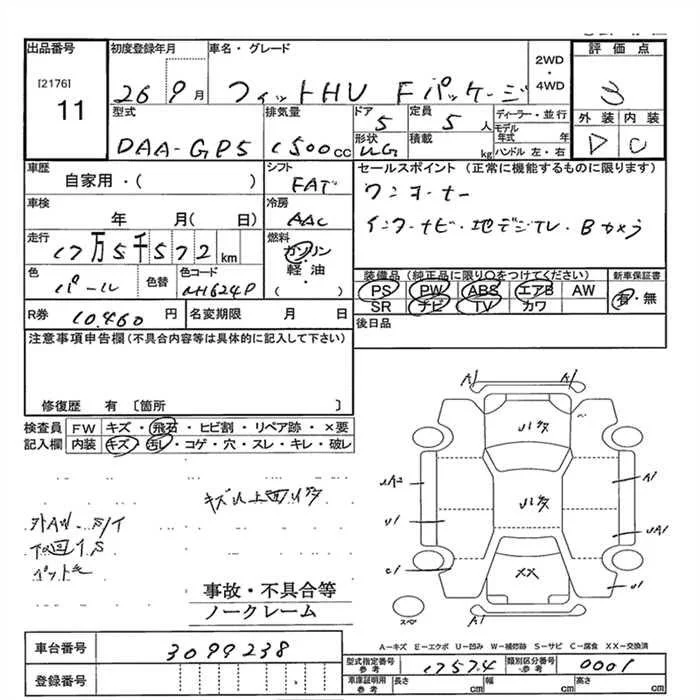 出品番号
[2176]
11
初度登録年月
26 9月
車名・グレード
フィットHV Fパッケージ
2WD
・
4WD
評価点
3
外装 内装
D C
型式
DAA-GP5
排気量
1500cc
ドア
5
形状
HG
定員
5人
積載
kg
ディーラー・並行
モデル年式 年
ハンドル 左・右
車歴
自家用・( )
シフト
FAT
セールスポイント (正常に機能するものに限ります)
ワンオーナー
インターナビ・地デジTV・Bカメラ
車検
年 月( 日)
冷房
AAC
走行
17万5千572km
燃料
ガソリン
・
軽・油
( )
色
パール
色替
色コード
NH624P
装備品 (純正品に限り○をつけてください)
PS PW ABS エアB AW
SR ナビ TV カワ
新車保証書
有・無
R券 10.460円
名変期限 月 日
後日品
注意事項申告欄(不具合内容等は具体的に記入して下さい)
修復歴 有〔箇所 〕
検査員記入欄
FW キズ・飛石・ヒビ割・リペア跡・×要
内装 キズ・汚レ・コゲ・穴・スレ・キレ・破レ
A1 A1
A1
U1
UA1
C1
U1
XX
スペア
事故・不具合等
ノークレーム
A-キズ E-エクボ U-凹み W-補修跡 S-サビ C-腐食 XX-交換済
車台番号 3099238
登録番号
型式指定番号 参考 17574
類別区分番号 参考 0001
車庫証明用 参考
長さ cm 幅 cm 高さ cm